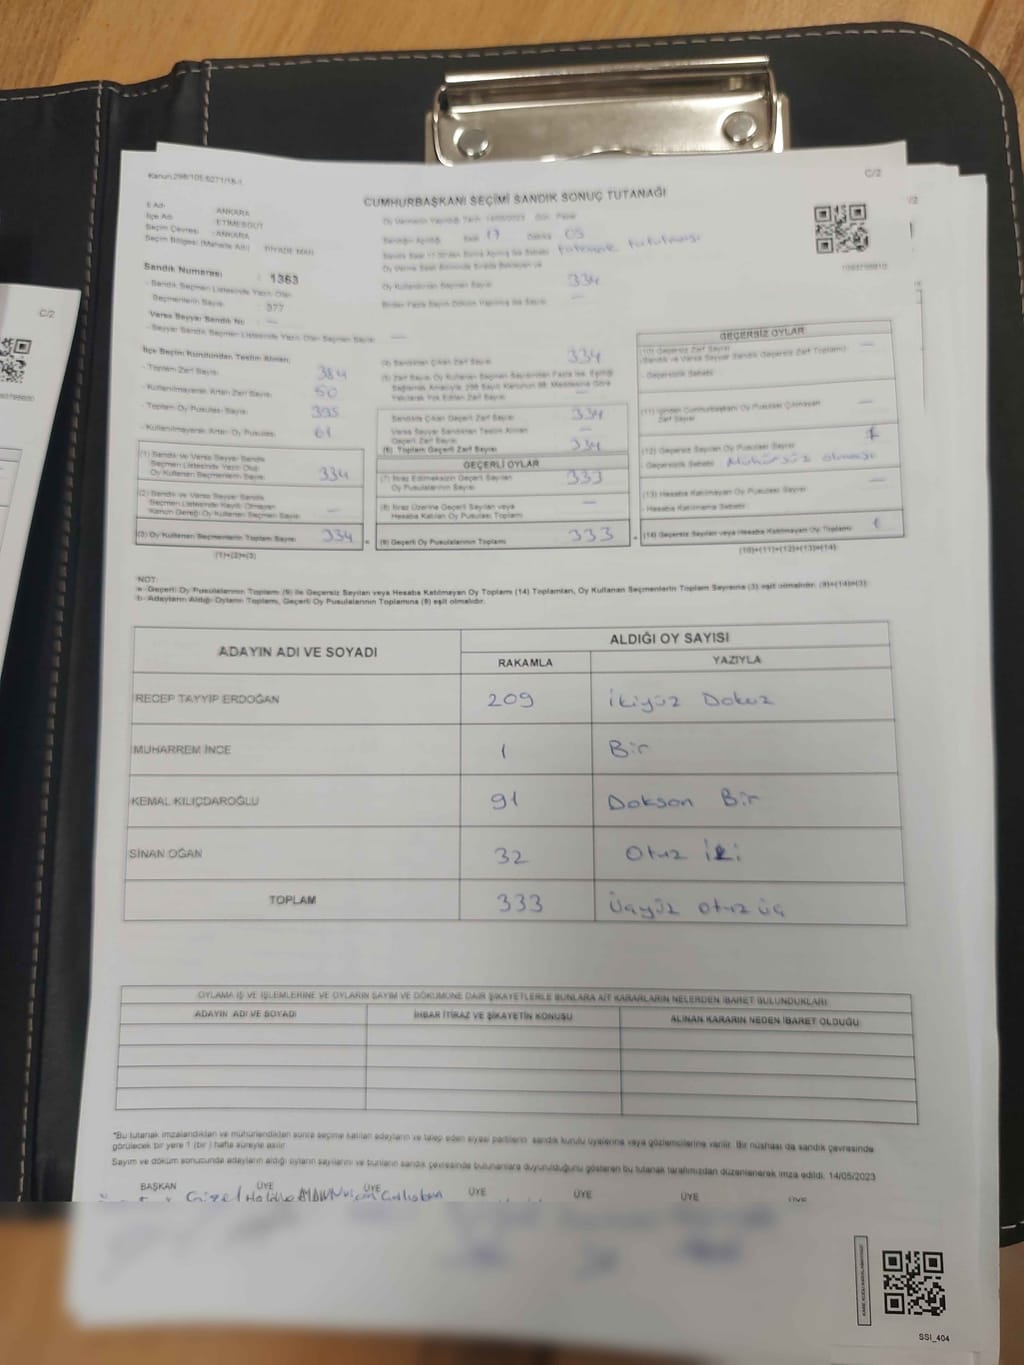 Kanun:298/105,6271/18-I
C/2
CUMHURBAŞKANI SEÇİMİ SANDIK SONUÇ TUTANAĞI
İl Adı : ANKARA
İlçe Adı : ETİMESGUT
Seçim Çevresi : ANKARA
Seçim Bölgesi (Mahalle Adı) : PİYADE MAH.
Oy Vermenin Yapıldığı Tarih: 14/05/2023 Gün: Pazar
Sandığın Açıldığı Saat 17 Dakika 05
Oy Kullandırılan Seçmen Sayısı 334
Birden Fazla Sayım Döküm Yapılmış İse Sayısı —
Sandık Numarası : 1363
- Sandık Seçmen Listesinde Yazılı Olan
Seçmenlerin Sayısı : 377
Varsa Seyyar Sandık No : —
- Seyyar Sandık Seçmen Listesinde Yazılı Olan Seçmen Sayısı —
İlçe Seçim Kurulundan Teslim Alınan;
- Toplam Zarf Sayısı 384
- Kullanılmayarak Artan Zarf Sayısı 50
- Toplam Oy Pusulası Sayısı 395
- Kullanılmayarak Artan Oy Pusulası 61
(1) Sandık ve Varsa Seyyar Sandık
Seçmen Listesinde Yazılı Olup
Oy Kullanan Seçmenlerin Sayısı 334
(2) Sandık ve Varsa Seyyar Sandık
Seçmen Listesinde Kayıtlı Olmayan
Kanun Gereği Oy Kullanan Seçmen Sayısı —
(3) Oy Kullanan Seçmenlerin Toplam Sayısı 334
(1)+(2)=(3)
(4) Sandıktan Çıkan Zarf Sayısı 334
(5) Zarf Sayısı, Oy Kullanan Seçmen Sayısından Fazla İse, Eşitliği
Sağlamak Amacıyla 298 Sayılı Kanunun 98. Maddesine Göre
Yakılarak Yok Edilen Zarf Sayısı —
Sandıkta Çıkan Geçerli Zarf Sayısı 334
Varsa Seyyar Sandıktan Teslim Alınan
Geçerli Zarf Sayısı —
(6) Toplam Geçerli Zarf Sayısı 334
GEÇERLİ OYLAR
(7) İtiraz Edilmeksizin Geçerli Sayılan
Oy Pusulalarının Sayısı 333
(8) İtiraz Üzerine Geçerli Sayılan veya
Hesaba Katılan Oy Pusulası Toplamı —
(9) Geçerli Oy Pusulalarının Toplamı 333
GEÇERSİZ OYLAR
(10) Geçersiz Zarf Sayısı
(Sandık ve Varsa Seyyar Sandık Geçersiz Zarf Toplamı) —
- Geçersizlik Sebebi:
(11) İçinden Cumhurbaşkanı Oy Pusulası Çıkmayan
Zarf Sayısı —
(12) Geçersiz Sayılan Oy Pusulası Sayısı 1
Geçersizlik Sebebi: Mühürsüz olması
(13) Hesaba Katılmayan Oy Pusulası Sayısı —
- Hesaba Katılmama Sebebi:
(14) Geçersiz Sayılan veya Hesaba Katılmayan Oy Toplamı 1
(10)+(11)+(12)+(13)=(14)
NOT:
a- Geçerli Oy Pusulalarının Toplamı (9) ile Geçersiz Sayılan veya Hesaba Katılmayan Oy Toplamı (14) Toplamları, Oy Kullanan Seçmenlerin Toplam Sayısına (3) eşit olmalıdır. (9)+(14)=(3)
b- Adayların Aldığı Oyların Toplamı, Geçerli Oy Pusulalarının Toplamına (9) eşit olmalıdır.
ADAYIN ADI VE SOYADI ALDIĞI OY SAYISI
RAKAMLA YAZIYLA
RECEP TAYYİP ERDOĞAN 209 İkiyüz Dokuz
MUHARREM İNCE 1 Bir
KEMAL KILIÇDAROĞLU 91 Doksan Bir
SİNAN OĞAN 32 Otuz iki
TOPLAM 333 Üçyüz otuz üç
OYLAMA İŞ VE İŞLEMLERİNE VE OYLARIN SAYIM VE DÖKÜMÜNE DAİR ŞİKAYETLERLE BUNLARA AİT KARARLARIN NELERDEN İBARET BULUNDUKLARI
ADAYIN ADI VE SOYADI İHBAR İTİRAZ VE ŞİKAYETİN KONUSU ALINAN KARARIN NEDEN İBARET OLDUĞU
*Bu tutanak imzalandıktan ve mühürlendikten sonra seçime katılan adayların ve talep eden siyasi partilerin sandık kurulu üyelerine veya gözlemcilerine verilir. Bir nüshası da sandık çevresinde
görülecek bir yere 1 (bir) hafta süreyle asılır.
Sayım ve döküm sonucunda adayların aldığı oyların sayılarını ve bunların sandık çevresinde bulunanlara duyurulduğunu gösteren bu tutanak tarafımızdan düzenlenerek imza edildi. 14/05/2023
BAŞKAN ÜYE ÜYE ÜYE ÜYE ÜYE ÜYE
SSI_404
C/2